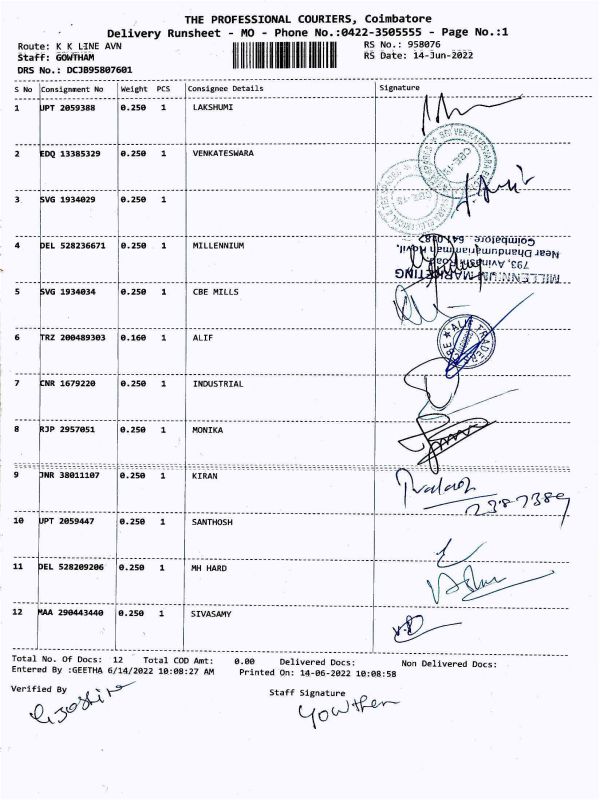 THE PROFESSIONAL COURIERS, Coimbatore
Delivery Runsheet - MO - Phone No.:0422-3505555 - Page No.:1
Route: K K LINE AVN RS No.: 958076
Staff: GOWTHAM RS Date: 14-Jun-2022
DRS No.: DCJB95807601
S No Consignment No Weight PCS Consignee Details Signature
1 UPT 2059388 0.250 1 LAKSHUMI
2 EDQ 13385329 0.250 1 VENKATESWARA
3 SVG 1934029 0.250 1
4 DEL 528236671 0.250 1 MILLENNIUM
MILLENNIUM MARKETING
793, Avinashi Road,
Near Dhandumariamman Kovil,
Coimbatore
5 SVG 1934034 0.250 1 CBE MILLS
6 TRZ 200489303 0.160 1 ALIF
ALIF TRADER
7 CNR 1679220 0.250 1 INDUSTRIAL
8 RJP 2957051 0.250 1 MONIKA
9 JNR 38011107 0.250 1 KIRAN
10 UPT 2059447 0.250 1 SANTHOSH
11 DEL 528209206 0.250 1 MH HARD
12 MAA 290443440 0.250 1 SIVASAMY
Total No. Of Docs: 12 Total COD Amt: 0.00 Delivered Docs: Non Delivered Docs:
Entered By :GEETHA 6/14/2022 10:08:27 AM Printed On: 14-06-2022 10:08:58
Verified By Staff Signature